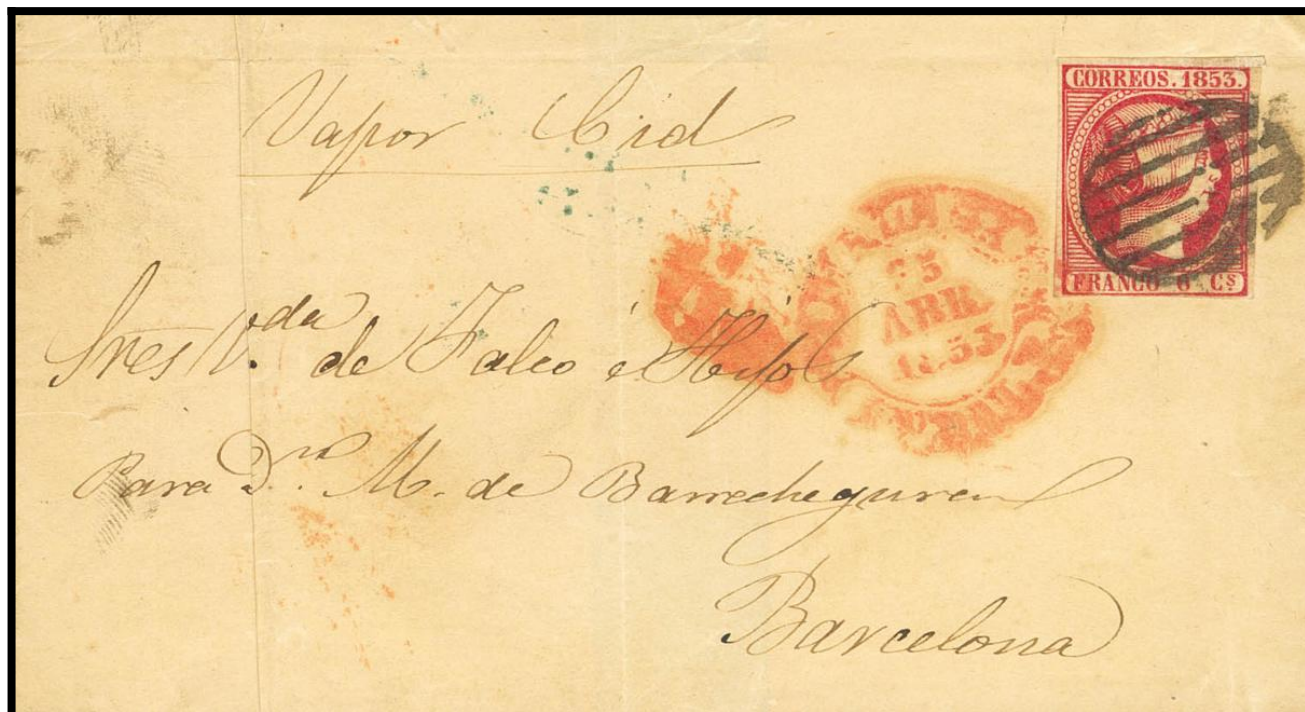 CORREOS. 1853.
Vapor Cid
FRANCO 6 Cs
25
ABR.
1853
Sres V.da de Falco é Hijos
Para D.n M. de Barrecheguren
Barcelona